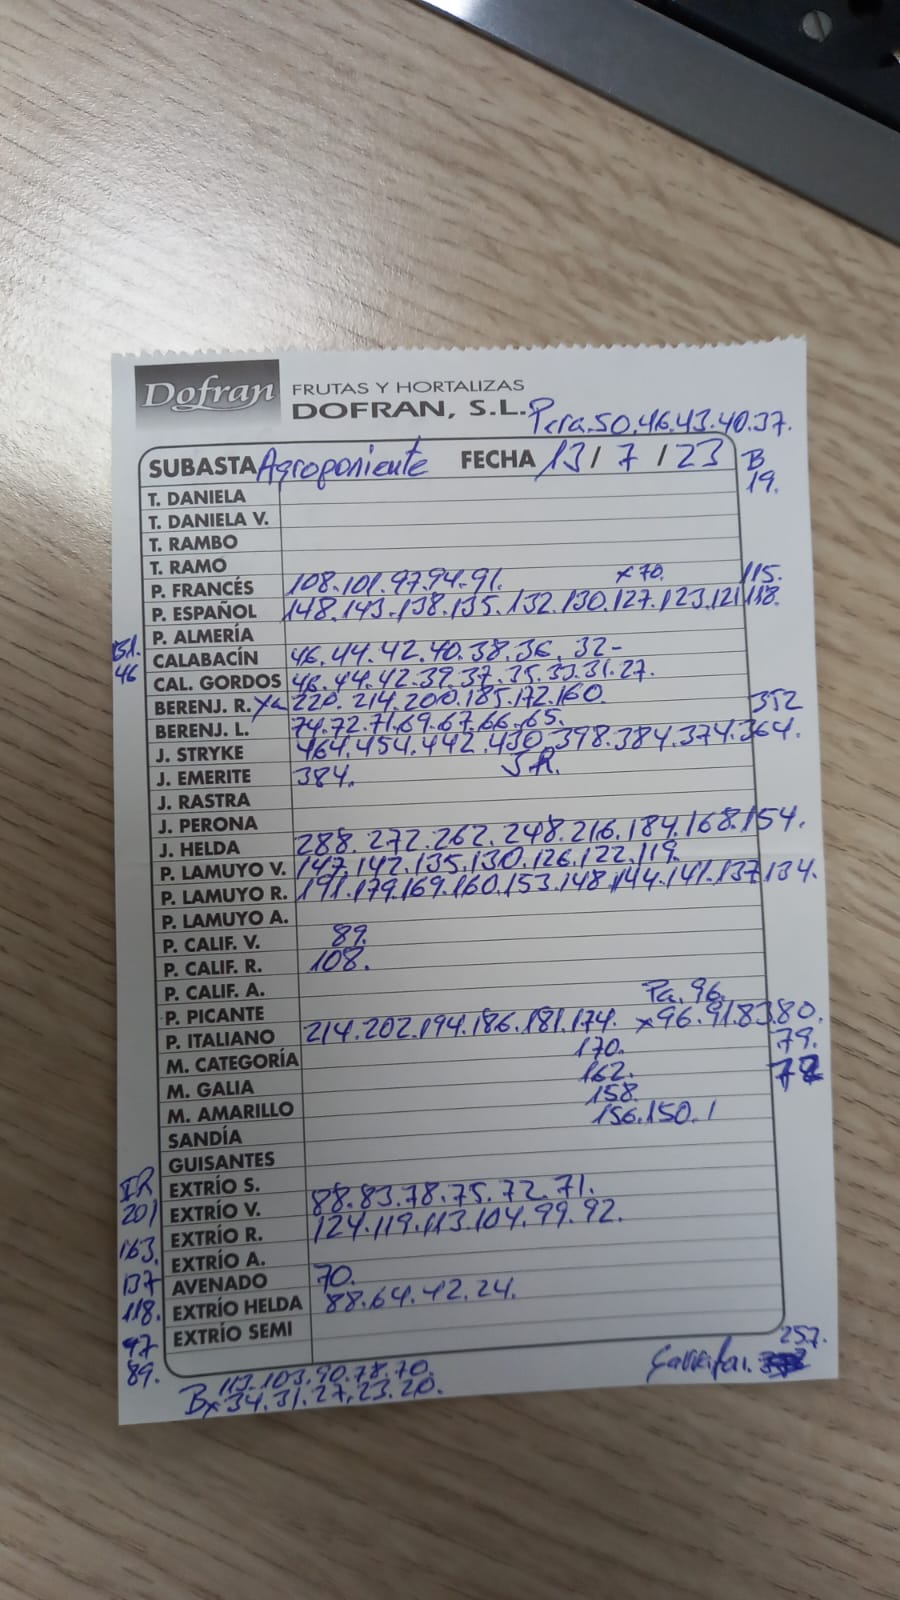 Dofran FRUTAS Y HORTALIZAS
DOFRAN, S.L. Pera.50.46.43.40.37.
SUBASTA Agroponiente FECHA 13/7/23 B
19.
T. DANIELA
T. DANIELA V.
T. RAMBO
T. RAMO
P. FRANCÉS 108.101.97.94.91. x70. 115.
P. ESPAÑOL 148.143.138.135.132.130.127.123.121.118.
P. ALMERÍA
51.
CALABACÍN 46.44.42.40.38.36.32-
46
CAL. GORDOS 46.44.42.39.37.35.33.31.27.
BERENJ. R. 220.214.200.185.172.160. 352
BERENJ. L. 74.72.71.69.67.66.65.
J. STRYKE 464.454.442.430.398.384.374.364.
J. EMERITE 384. SR.
J. RASTRA
J. PERONA
J. HELDA 288.272.262.248.216.184.168.154.
P. LAMUYO V. 147.142.135.130.126.122.119.
P. LAMUYO R. 191.179.169.160.153.148.144.141.137.134.
P. LAMUYO A.
P. CALIF. V. 89.
P. CALIF. R. 108.
P. CALIF. A.
P. PICANTE Pa. 96.
P. ITALIANO 214.202.194.186.181.174. x96.91.83.80.
M. CATEGORÍA 170. 79.
M. GALIA 162.
M. AMARILLO 158.
SANDÍA 156.150.1
GUISANTES
IR EXTRÍO S. 88.83.78.75.72.71.
201 EXTRÍO V. 124.119.113.104.99.92.
163. EXTRÍO R.
EXTRÍO A.
137 AVENADO 70.
118. EXTRÍO HELDA 88.64.42.24.
97 EXTRÍO SEMI 257.
89.
113.103.90.78.70.
Bx34.31.27.23.20.